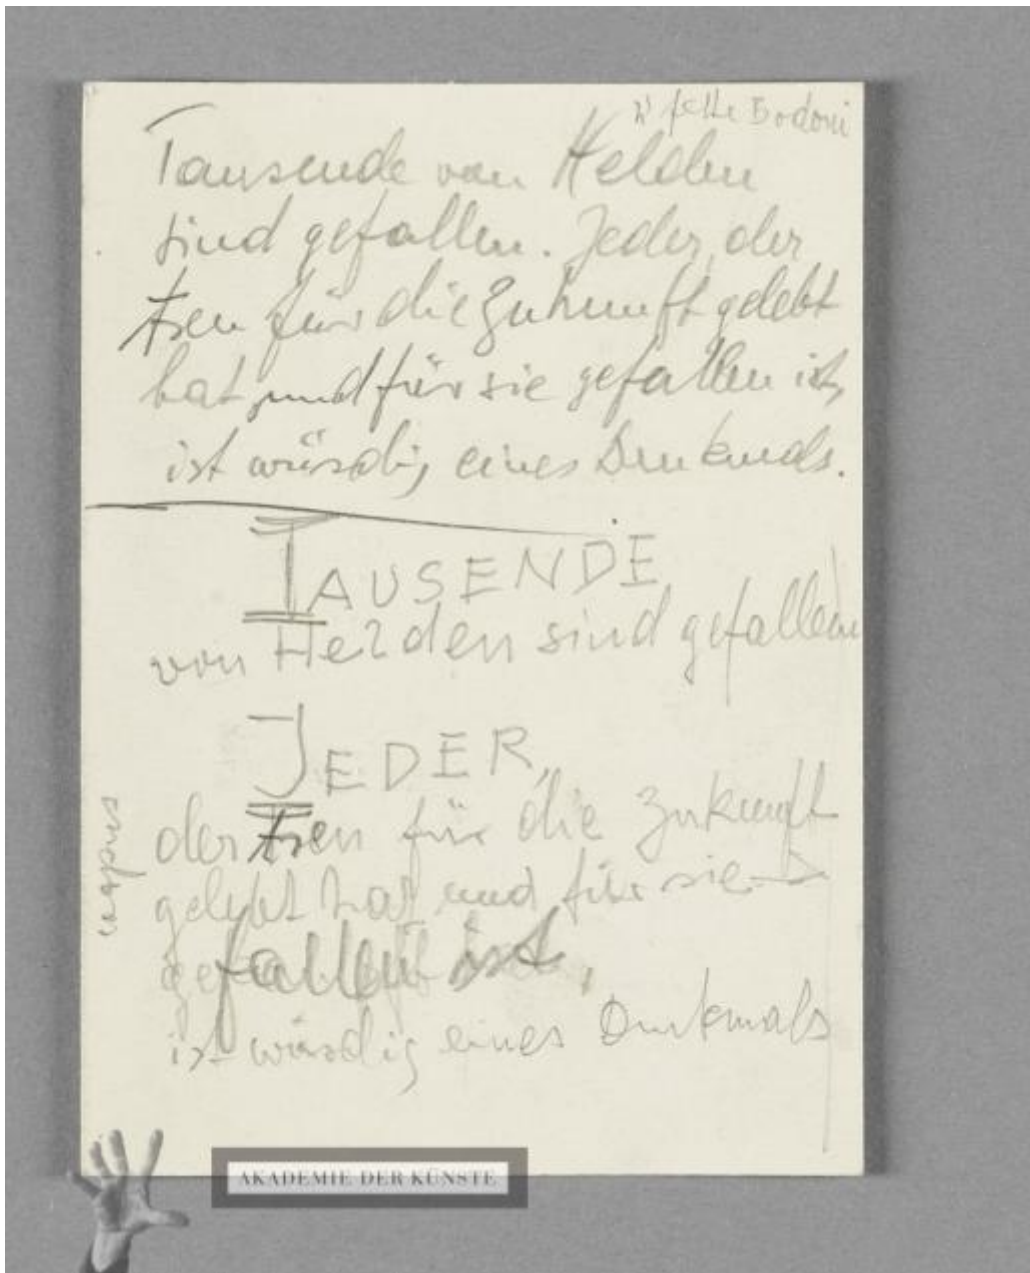 fette Bodoni
Tausende von Helden
sind gefallen. Jeder, der
treu für die Zukunft gelebt
hat, und für sie gefallen ist,
ist würdig eines Denkmals.
TAUSENDE
von Helden sind gefallen
JEDER,
der treu für die Zukunft
gelebt hat und für sie
gefallen ist,
ist würdig eines Denkmals
AKADEMIE DER KÜNSTE